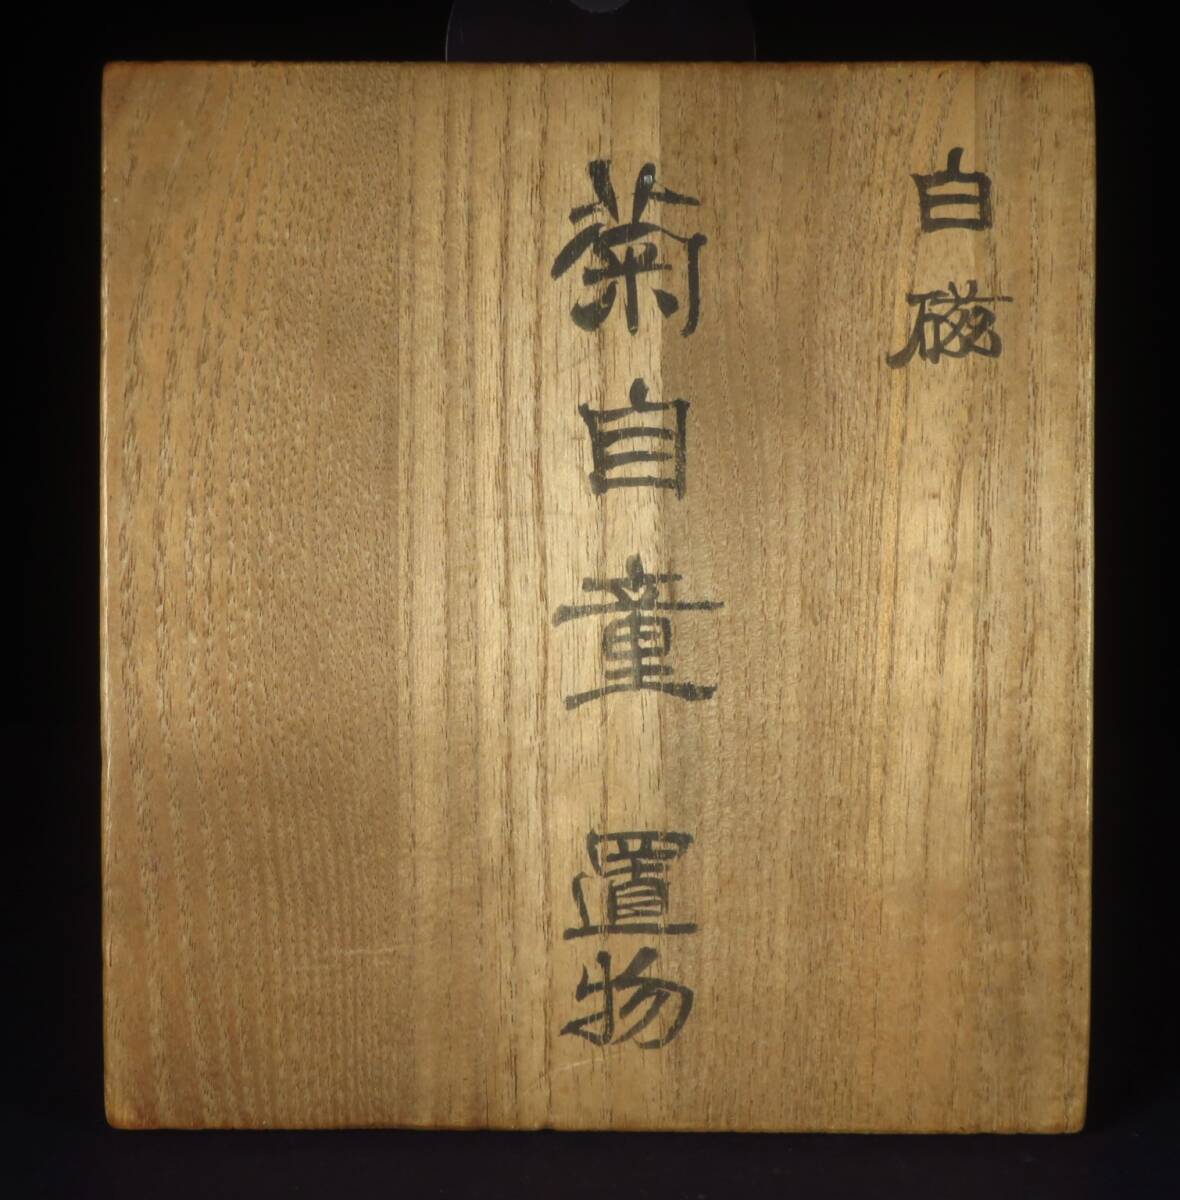 白磁
菊自童 置物